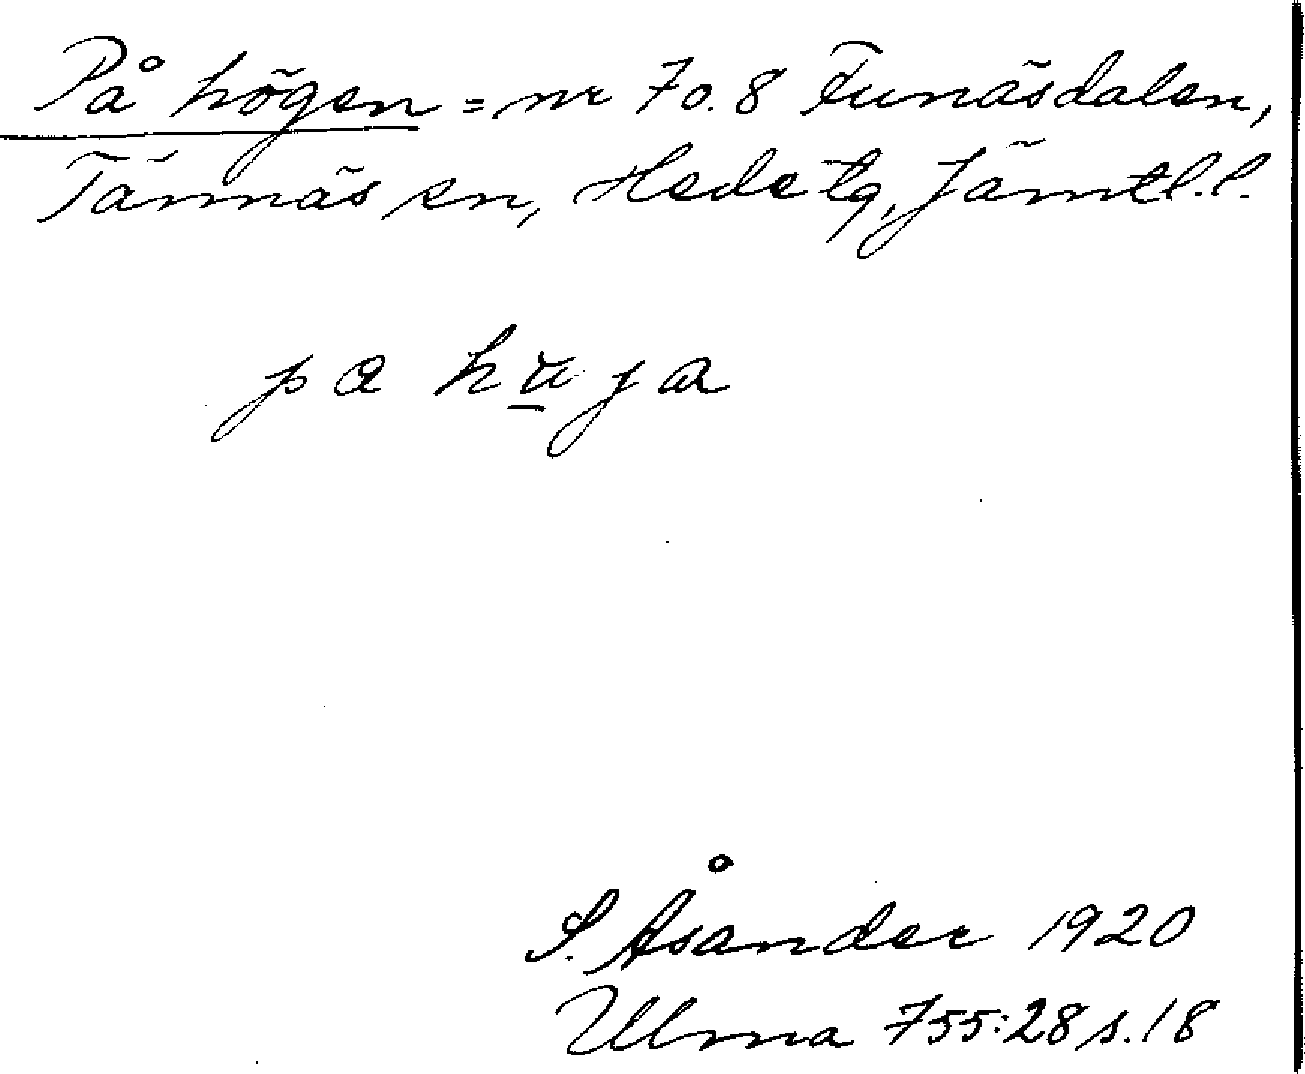 På högen = nr 70.8 Funäsdalen,
Tännäs sn, Hede tg, Jämtl. l.
pa huja
S. Åsander 1920
Ulma 755:28 s. 18